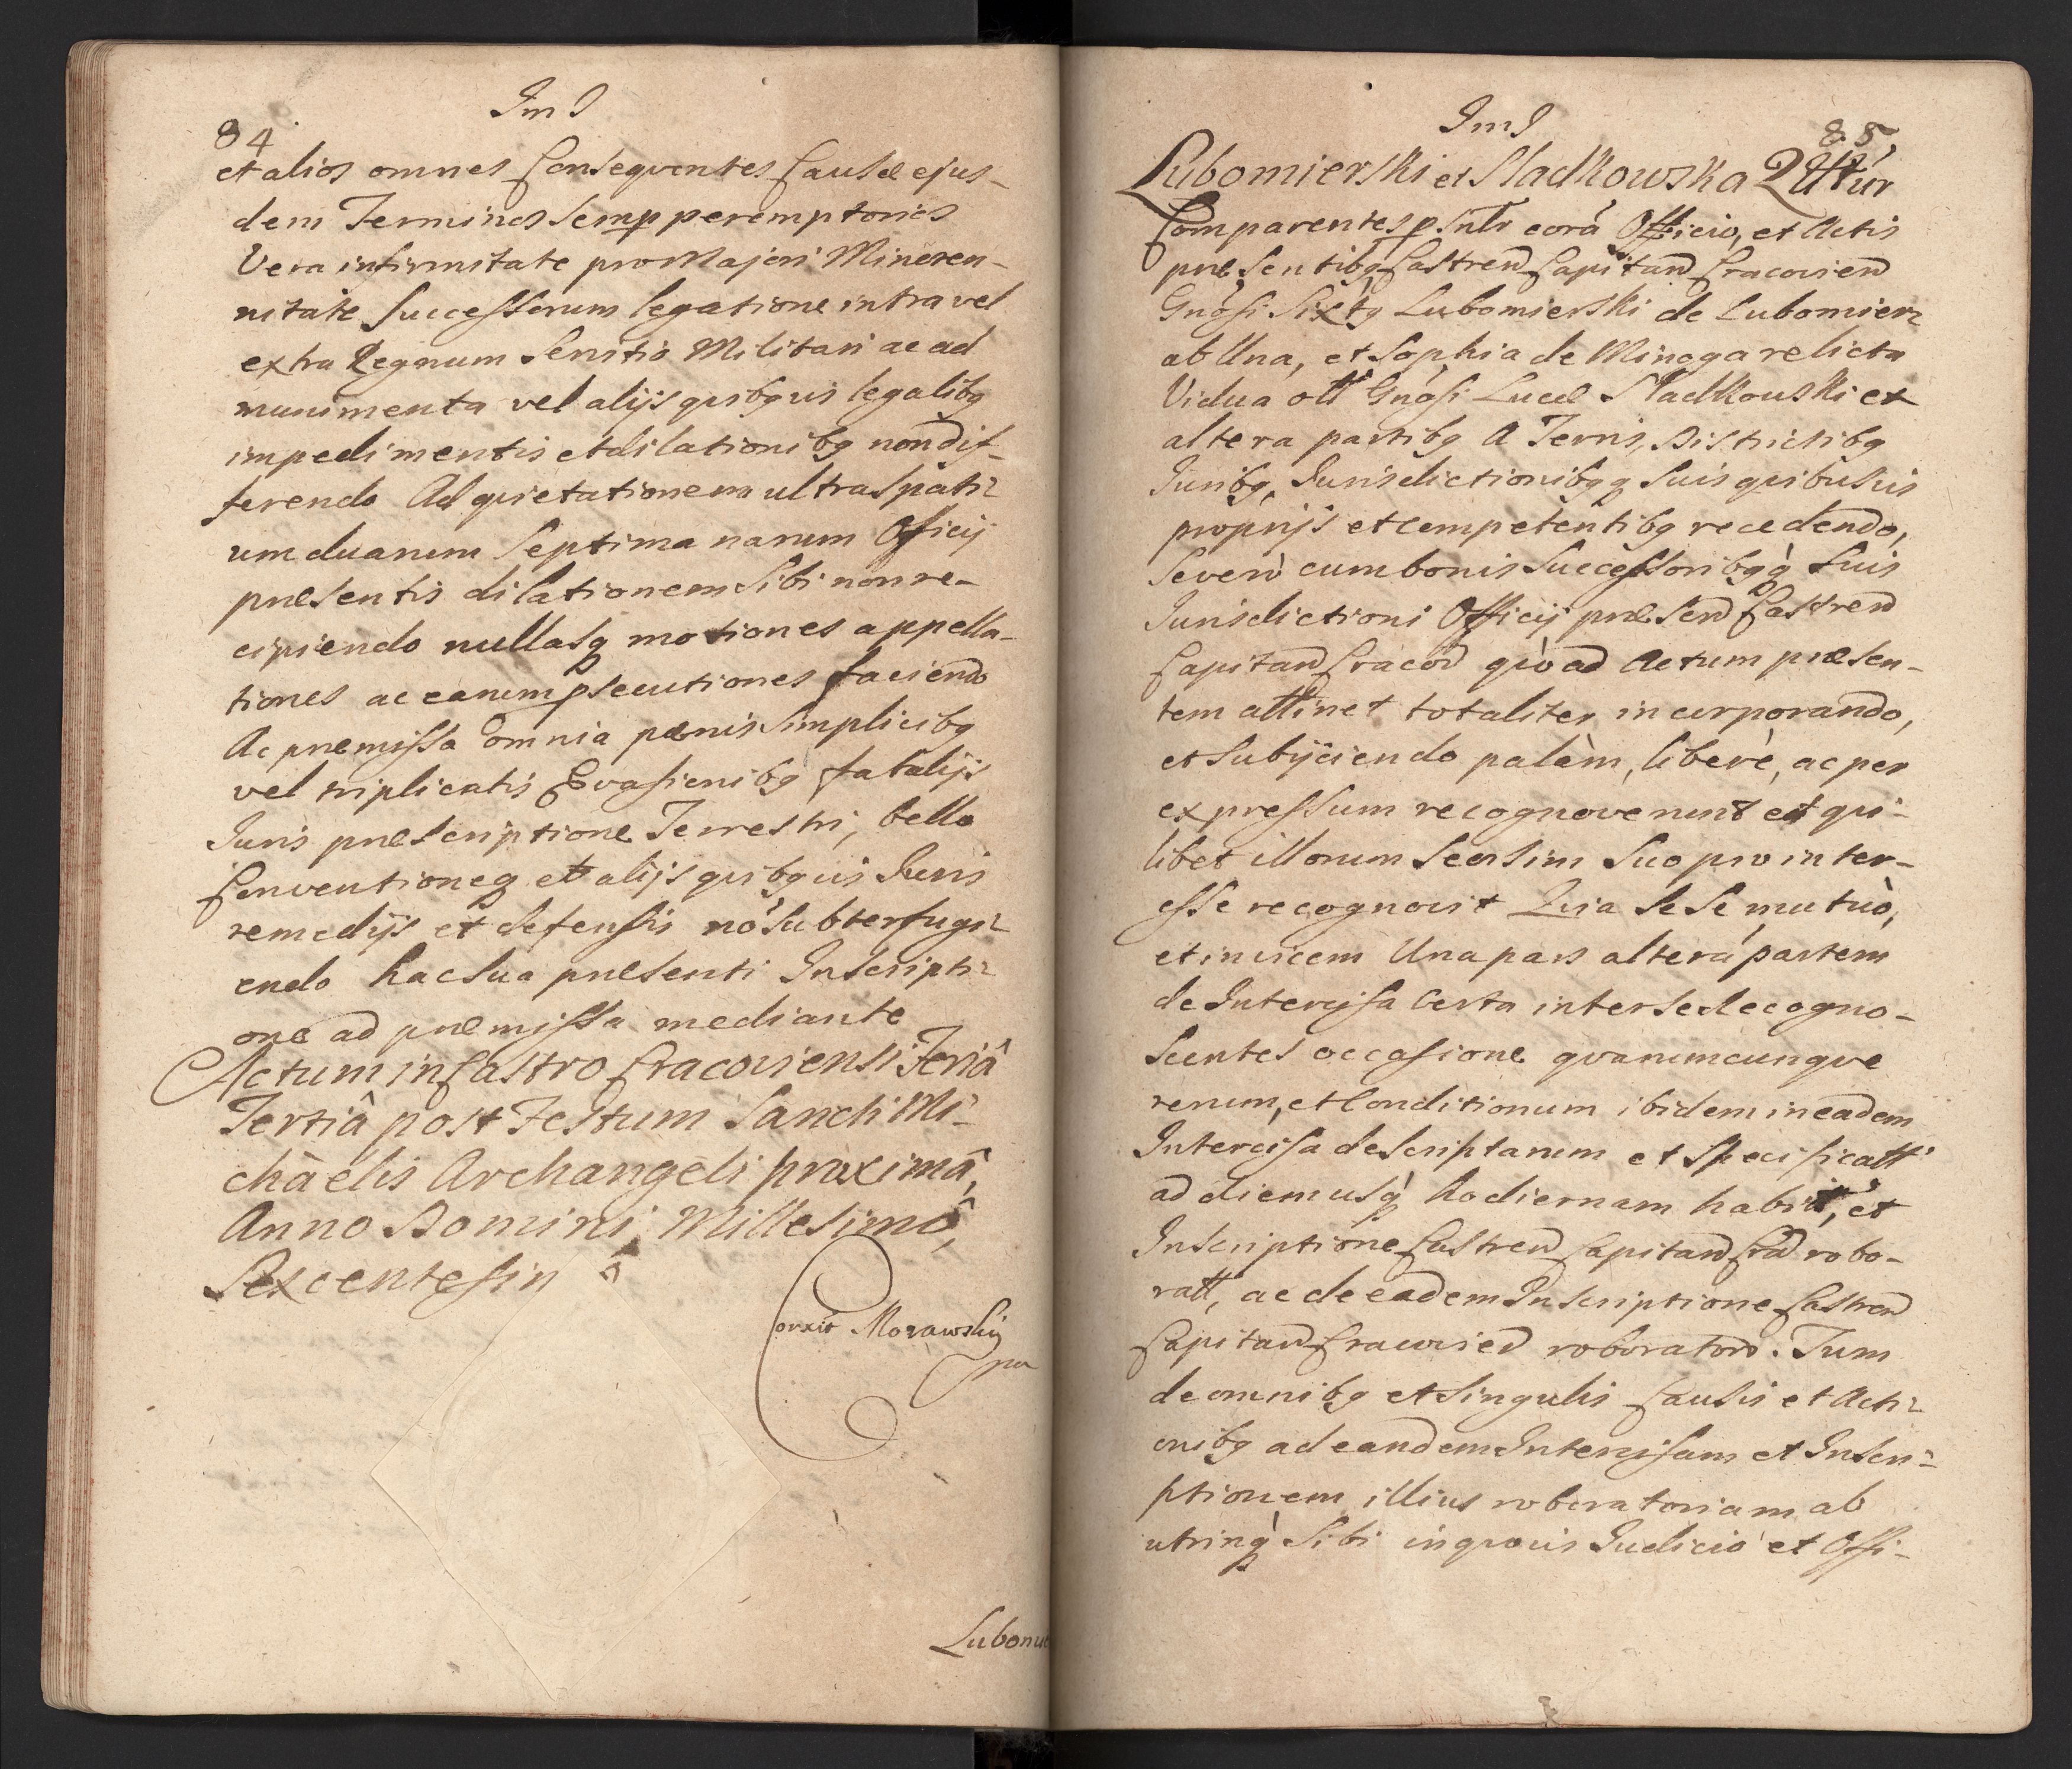 Im J
84
et alios omnes Conseqventes Causæ ejus-
dem Terminos semp peremptorios
Vera infirmitate pro Majori Mineren-
nitate Successorum legatione intra vel
extra Regnum Servitio Militari ac ad
munimenta vel alijs qvibqvis legalibq
impedimentis et dilationibq non dif-
ferendo Ad qvietationem ultra spati-
um duarum Septimanarum Officij
præsentis dilationem sibi non re-
cipiendo nullasq motiones appella-
tiones ac earum psecutiones faciendo
Ac præmissa omnia pænis simplicibq
vel triplicatis Evasionibq fatalijs
Juris præscriptione Terrestri, bello
Conventioneq et alijs qvibqvis Juris
remedijs et defensis nō subterfugi-
endo hac sua præsenti Inscripti-
one ad præmissa mediante
Actum in Castro Cracoviensi Feriâ
Tertiâ post Festum Sancti Mi-
chàelis Archangeli proximâ,
Anno Domini Millesimô,
Sexcentesim ô
Corxit Morawskij
mp
Lubomi
Im J
85
Lubomierski et Sladkowska Qūttūr
Comparentes psnlr corā Officio, et Actis
præsentibq Castren Capitan Cracovien
Gnōsi Sixtq Lubomierski de Lubomierz
ab Una, et Sophia de Minoga relicta
Vidua olī Gnōsi Lucæ Sladkowski ex
altera partibq A Terris, Districtibq
Juribq, Jurisdictionibqq suis qvibusvis
proprijs et competentibq recedendo,
Se verò cum bonis Successoribqq suis
Jurisdictioni Officij præsen Castren
Capitan Cracov qvòad Actum præsen-
tem attinet totaliter incorporando,
et Subijciendo palàm, liberè, ac per
expressum recognoverunt et qvi-
libet illorum seorsim suo pro inter-
esse recognovit Qvia sese mutuò,
et invicem Una pars alterā partem
de Intercisa Certa inter se de cogno-
scentes occasione qvarumcunqve
rerum, et Conditionum ibidem in eadem
Intercisa descriptarum et specificatt
ad diem usq hodiernam habit, et
Inscriptione Castren Capitan Crā robo-
ratt, ac de eadem Inscriptione Castren
Capitan Cracovien roboratoro. Tum
de omnibq et singulis Causis et Acti-
onibq ad eandem Intercisam et Inscri-
ptionem illius roboratoriam ab
utrinq sibi in qvovis Judicio et Offi-